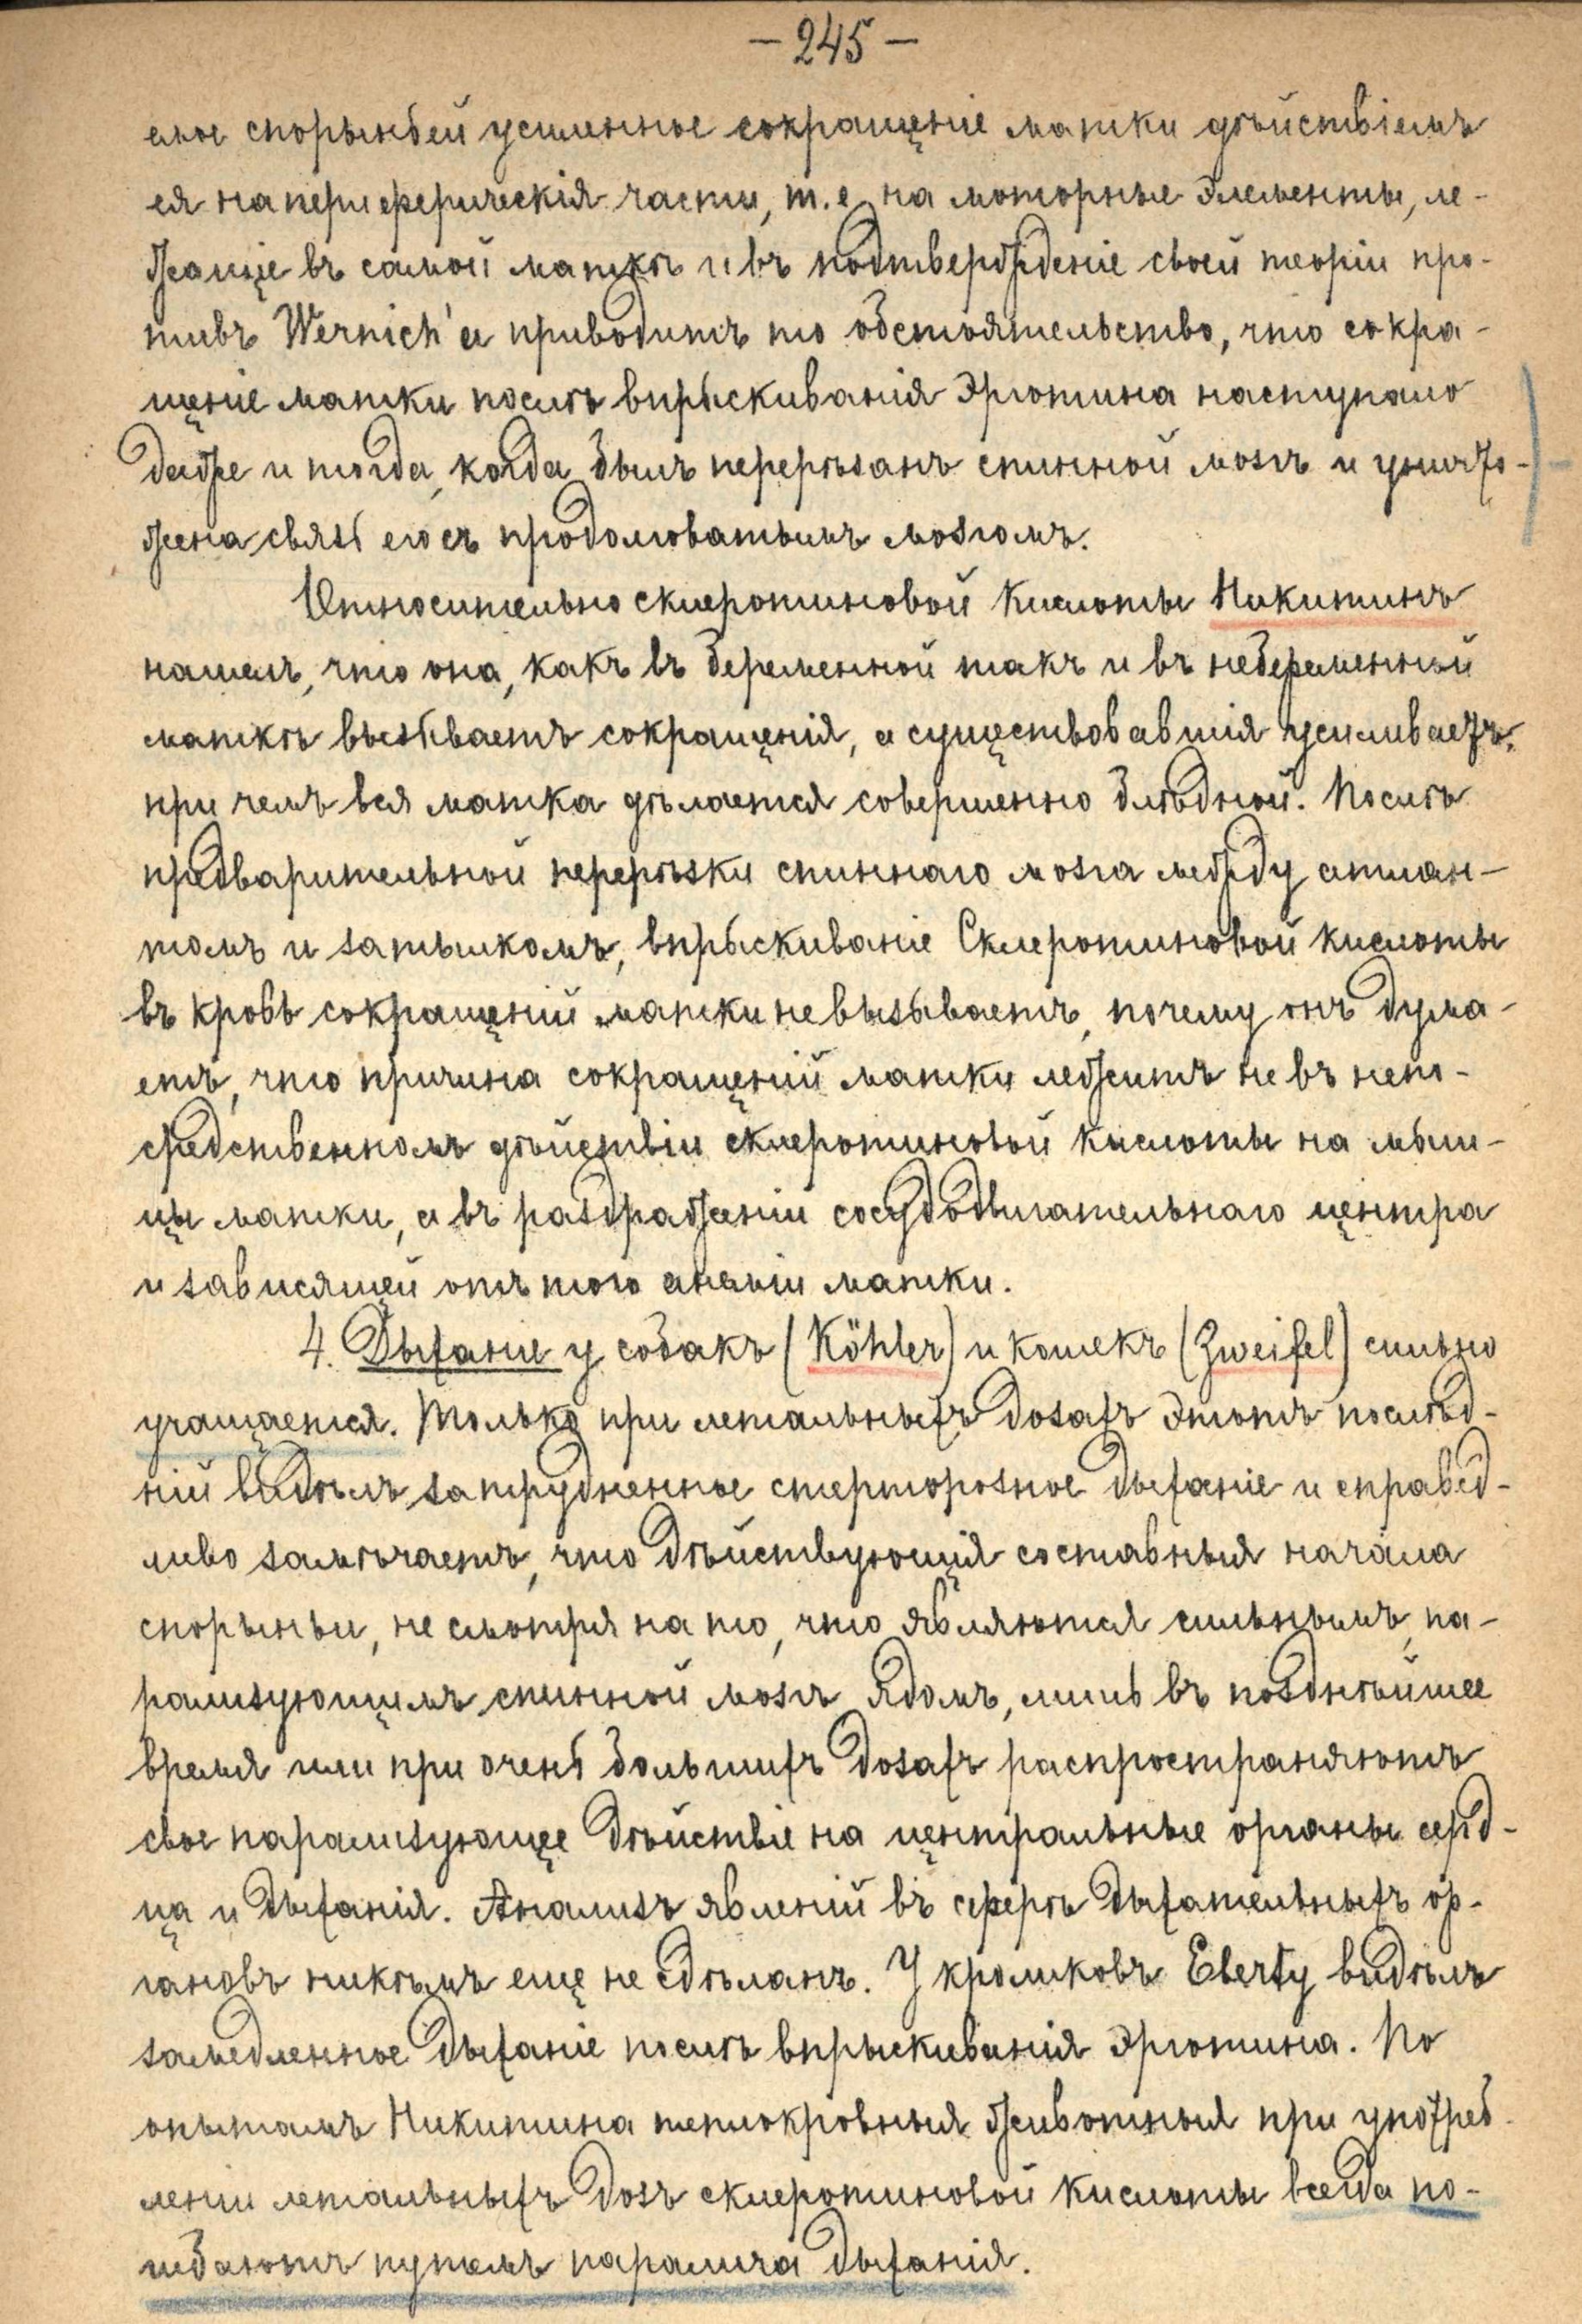 — 245 —
емое спорыньей усиленное сокращеніе матки дѣйствіемъ
ея на периферическія части, т.е. на моторные элементы, ле-
жащіе въ самой маткѣ и въ подтвержденіе своей теоріи про-
тивъ Wernich'а приводитъ то обстоятельство, что сокра-
щеніе матки послѣ впрыскиванія эрготина наступало
даже и тогда, когда былъ перерѣзанъ спинной мозгъ и уничто-
жена связь его съ продолговатымъ мозгомъ.
Относительно склеротиновой кислоты Никитинъ
нашелъ, что она, какъ въ беременной такъ и въ небеременной
маткѣ вызываетъ сокращенія, а существовавшія усиливаетъ,
при чемъ вся матка дѣлается совершенно блѣдной. Послѣ
предварительной перерѣзки спиннаго мозга между атлан-
томъ и затылкомъ, впрыскиваніе Склеротиновой кислоты
въ кровь сокращеній матки не вызываетъ, почему онъ дума-
етъ, что причина сокращеній матки лежитъ не въ непо-
средственномъ дѣйствіи склеротиновой кислоты на мыш-
цы матки, а въ раздраженіи сосудодвигательнаго центра
и зависящей отъ того анэміи матки.
4. Дыханіе у собакъ (Köhler) и кошекъ (Zweifel) сильно
учащается. Только при летальныхъ дозахъ этотъ послѣд-
ній видѣлъ затрудненное стерторозное дыханіе и справед-
ливо замѣчаетъ, что дѣйствующія составныя начала
спорыньи, не смотря на то, что являются сильнымъ, па-
рализующимъ спинной мозгъ ядомъ, лишь въ позднѣйшее
время или при очень большихъ дозахъ распространяютъ
свое парализующее дѣйствіе на центральные органы серд-
ца и дыханія. Анализъ явленій въ сферѣ дыхательныхъ ор-
гановъ никѣмъ еще не сдѣланъ. У кроликовъ Eberty видѣлъ
замедленное дыханіе послѣ впрыскиванія эрготина. По
опытамъ Никитина теплокровныя животныя при употреб-
леніи летальныхъ дозъ склеротиновой кислоты всегда по-
гибаютъ путемъ паралича дыханія.